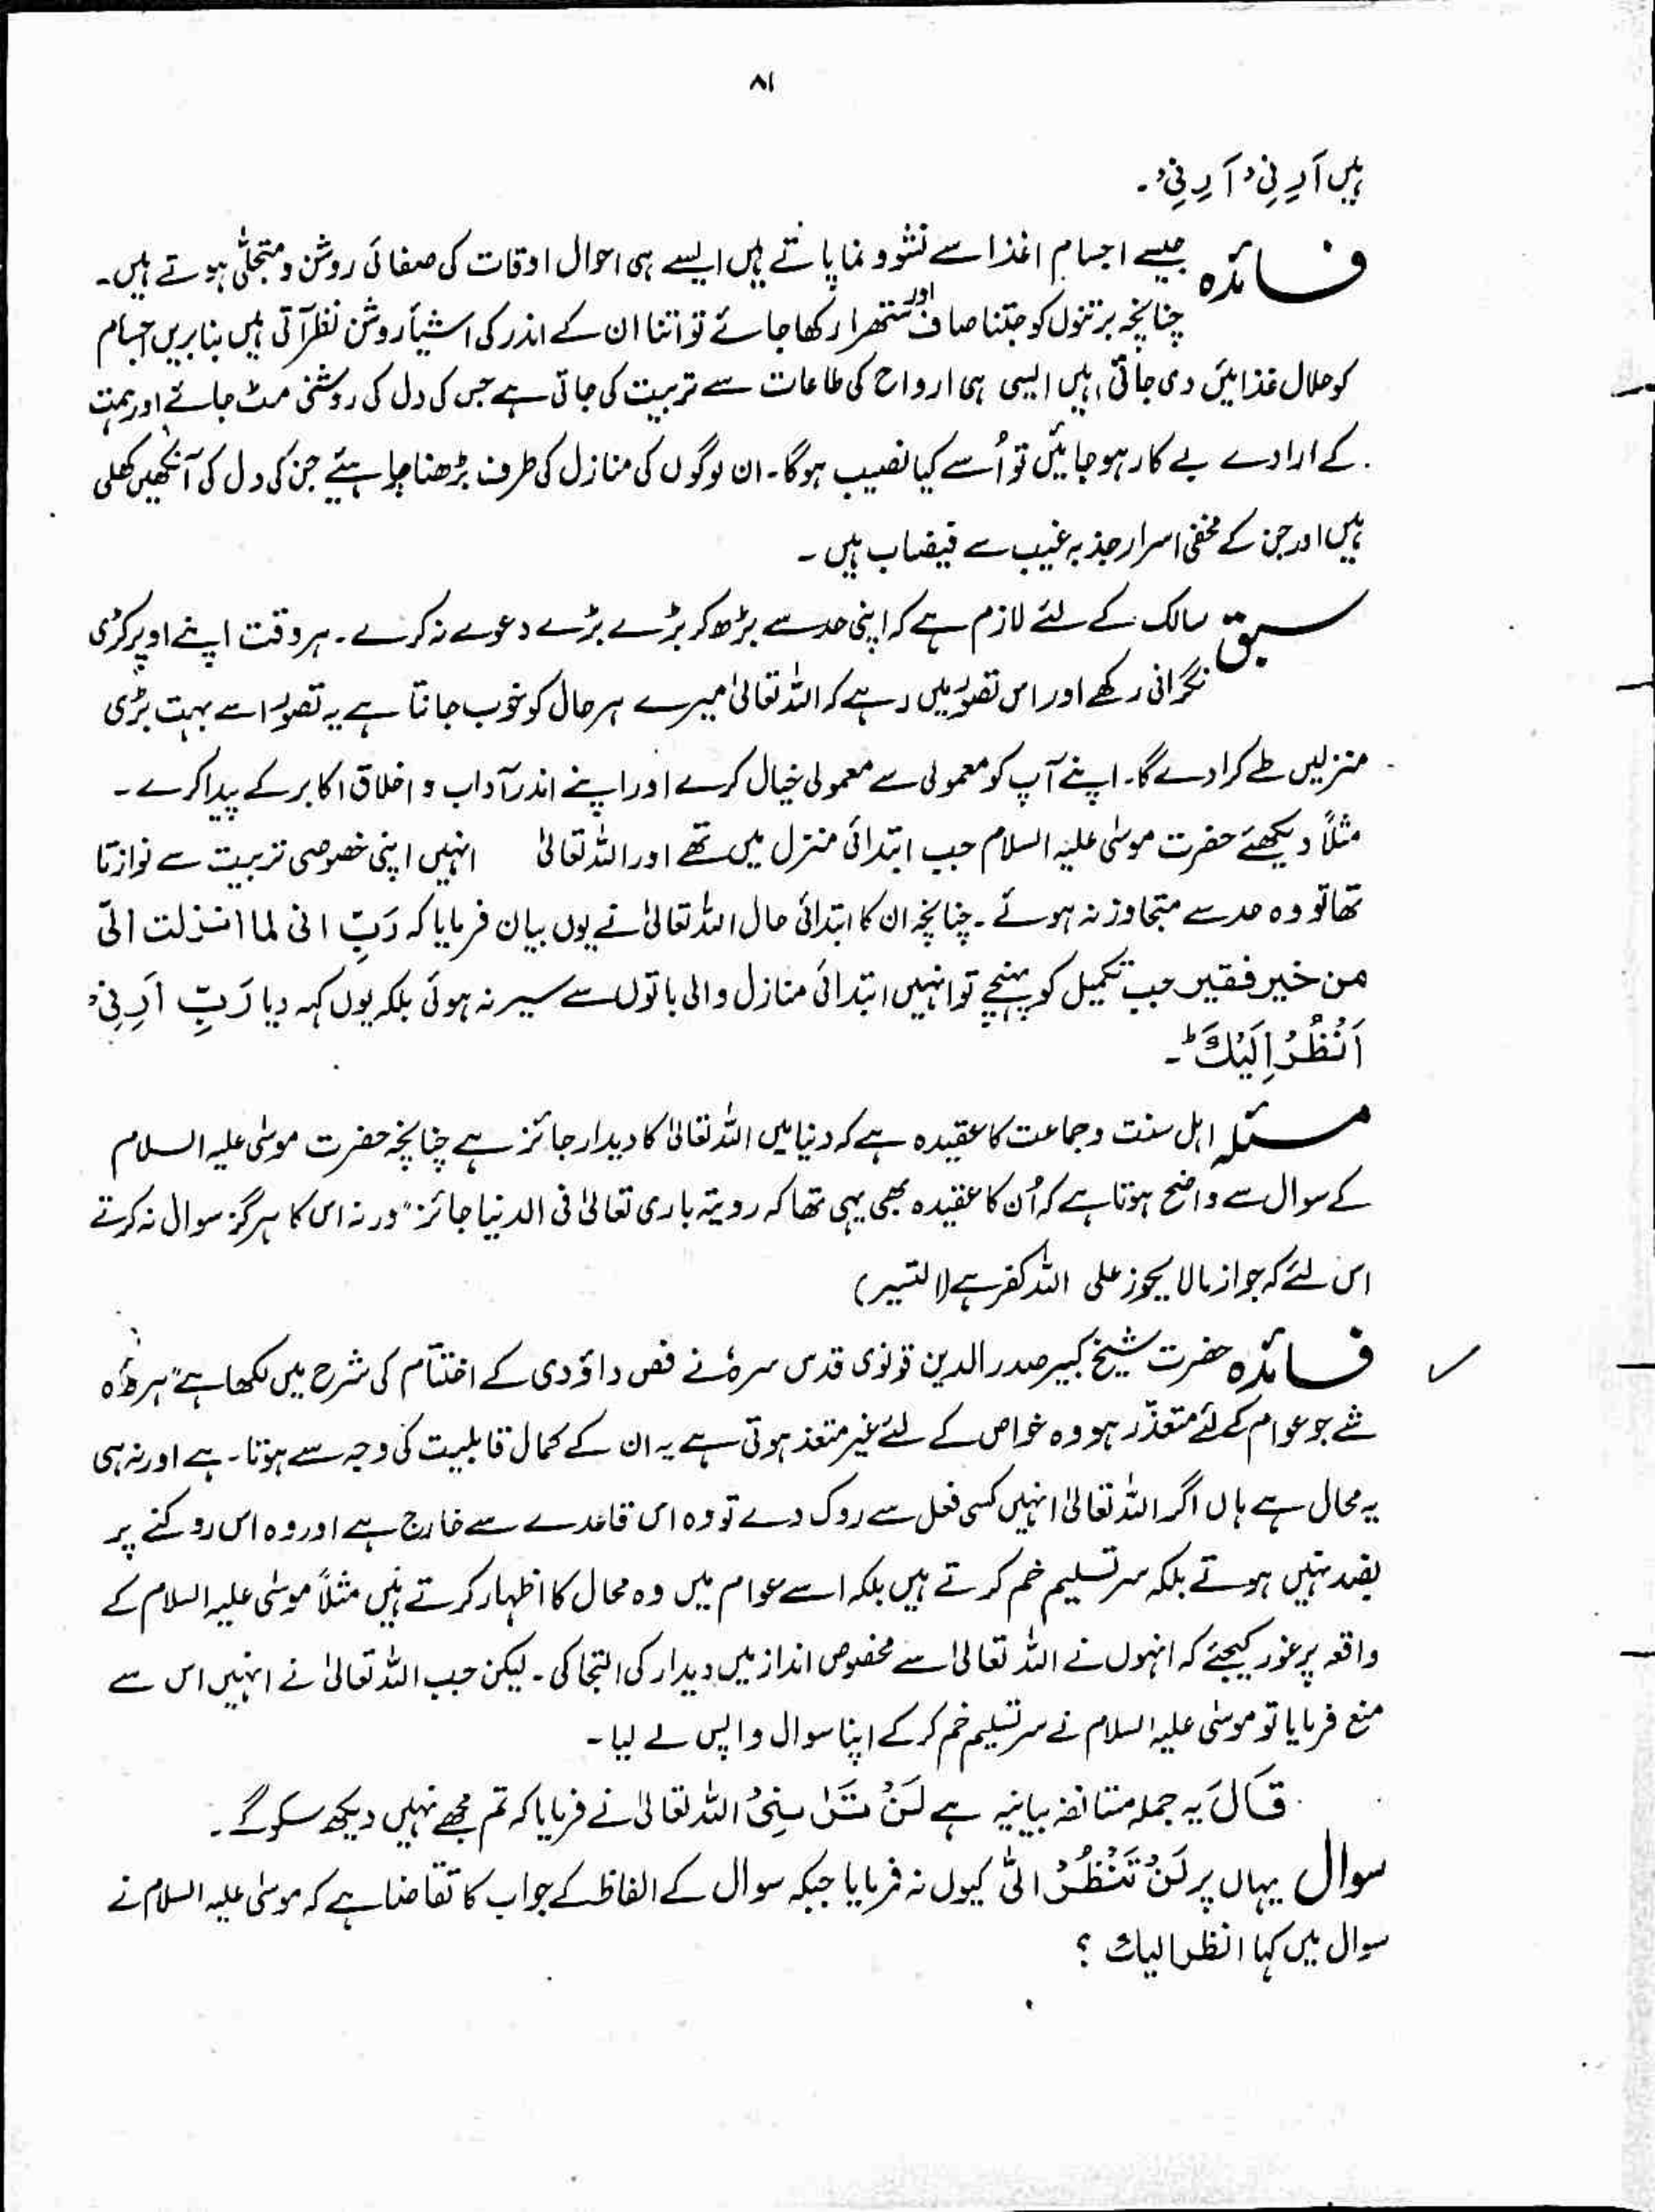 ۸۱
ہیں اَرِنِیْ اَرِنِیْ۔
فائدہ جیسے اجسام اغذا سے نشوونما پاتے ہیں ایسے ہی احوال اوقات کی صفائی روشن و متجلی ہوتے ہیں۔
چنانچہ برتنوں کو جتنا صاف اور ستھرا رکھا جائے تو اتنا ان کے اندر کی اشیأ روشن نظر آتی ہیں بنا بریں اجسام
کو حلال غذائیں دی جاتی ہیں ایسی ہی ارواح کی طاعات سے تربیت کی جاتی ہے جس کی دل کی روشنی مٹ جائے اور ہمت
کے ارادے بے کار ہو جائیں تو اُسے کیا نصیب ہوگا۔ ان لوگوں کی منازل کی طرف بڑھنا چاہئیے جن کی دل کی آنکھیں کھلی
ہیں اور جن کے مخفی اسرار جذبہ غیب سے فیضاب ہیں ۔
سبق سالک کے لئے لازم ہے کہ اپنی حد سے بڑھ کر بڑے بڑے دعوے نہ کرے۔ ہر وقت اپنے اوپر کڑی
نگرانی رکھے اور اس تصور میں رہے کہ اللہ تعالیٰ میرے ہر حال کو خوب جانتا ہے یہ تصور اسے بہت بڑی
منزلیں طے کرا دے گا۔ اپنے آپ کو معمولی سے معمولی خیال کرے اور اپنے اندر آداب و اخلاق اکابر کے پیدا کرے ۔
مثلاً دیکھئے حضرت موسیٰ علیہ السلام جب ابتدائی منزل میں تھے اور اللہ تعالیٰ انہیں اپنی خصوصی تربیت سے نوازتا
تھا تو وہ حد سے متجاوز نہ ہوئے ۔ چنانچہ ان کا ابتدائی حال اللہ تعالیٰ نے یوں بیان فرمایا کہ رَبِّ انی لما انزلت الیّ
من خیر فقیر جب تکمیل کو پہنچے تو انہیں ابتدائی منازل والی باتوں سے سیر نہ ہوئی بلکہ یوں کہہ دیا رَبِّ اَرِنِیْ
اَنْظُرْ اِلَیْكَ ط۔
مسئلہ اہل سنت و جماعت کا عقیدہ ہے کہ دنیا میں اللہ تعالیٰ کا دیدار جائز ہے چنانچہ حضرت موسیٰ علیہ السلام
کے سوال سے واضح ہوتا ہے کہ اُن کا عقیدہ بھی یہی تھا کہ رویتہ باری تعالیٰ فی الدنیا جائز" ورنہ اس کا ہرگز سوال نہ کرتے
اس لئے کہ جواز مالا یجوز علی اللہ کفر ہے (التیسیر)
فائدہ حضرت شیخ کبیر صدر الدین قونوی قدس سرہٗ نے فص داؤدی کے اختتام کی شرح میں لکھا ہے" ہر وہ
شے جو عوام کے لئے متعذّر ہو وہ خواص کے لئے غیر متعذ ہوتی ہے یہ ان کے کمال قابلیت کی وجہ سے ہوتا ہے اور نہ ہی
یہ محال ہے ہاں اگر اللہ تعالیٰ انہیں کسی فعل سے روک دے تو وہ اس قاعدے سے خارج ہے اور وہ اس روکنے پر
بضد نہیں ہوتے بلکہ سر تسلیم خم کرتے ہیں بلکہ اسے عوام میں وہ محال کا اظہار کرتے ہیں مثلاً موسیٰ علیہ السلام کے
واقعہ پر غور کیجئے کہ انہوں نے اللہ تعالیٰ سے مخصوص انداز میں دیدار کی التجا کی ۔ لیکن جب اللہ تعالیٰ نے انہیں اس سے
منع فرمایا تو موسیٰ علیہ السلام نے سر تسلیم خم کر کے اپنا سوال واپس لے لیا ۔
قَالَ یہ جملہ مستانفہ بیانیہ ہے لَنْ تَرٰىنِیْ اللہ تعالیٰ نے فرمایا کہ تم مجھے نہیں دیکھ سکو گے ۔
سوال یہاں پر لَنْ تَنْظُرْ الیّٰ کیوں نہ فرمایا جبکہ سوال کے الفاظ کے جواب کا تقاضا ہے کہ موسیٰ علیہ السلام نے
سوال میں کہا انظر الیك ؟